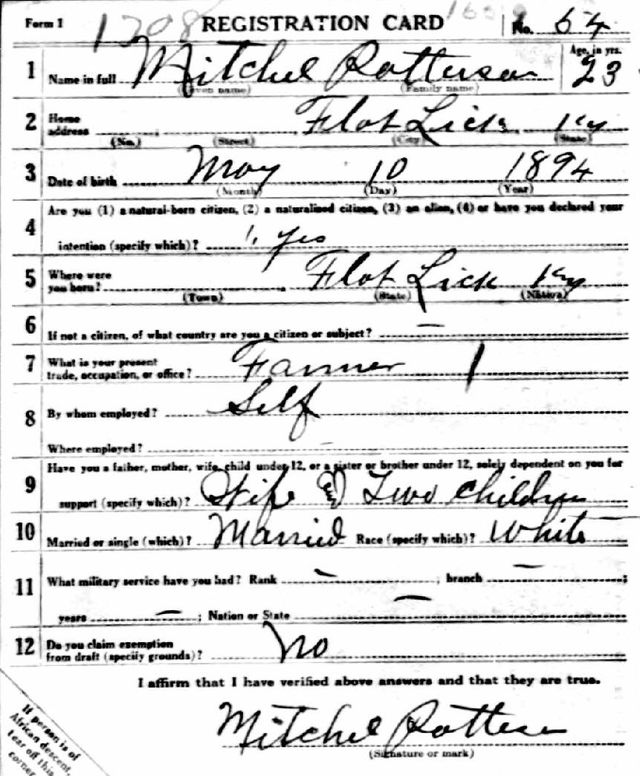 Form 1 1708 REGISTRATION CARD No. 64
1 Name in full Mitchel Patterson Age, in yrs. 23
(Given name) (Family name)
2 Home address Flat Lick Ky
(No.) (Street) (City) (State)
3 Date of birth May 10 1894
(Month) (Day) (Year)
4 Are you (1) a natural-born citizen, (2) a naturalized citizen, (3) an alien, (4) or have you declared your
intention (specify which)? 1. yes
5 Where were you born? Flat Lick Ky
(Town) (State) (Nation)
6 If not a citizen, of what country are you a citizen or subject? —
7 What is your present trade, occupation, or office? Farmer 1
8 By whom employed? Self
Where employed? —
9 Have you a father, mother, wife, child under 12, or a sister or brother under 12, solely dependent on you for
support (specify which)? Wife and Two Children
10 Married or single (which)? Married Race (specify which)? White
11 What military service have you had? Rank — ; branch — ;
years — ; Nation or State —
12 Do you claim exemption from draft (specify grounds)? No
I affirm that I have verified above answers and that they are true.
Mitchel Patterson
(Signature or mark)
If person is of
African descent,
tear off this
corner